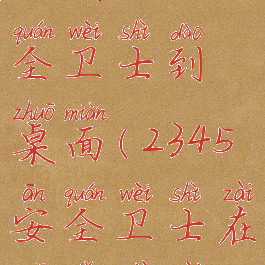 quán wèi shì dào
全卫士到
zhuō miàn
桌面(2345
ān quán wèi shì zài
安全卫士在